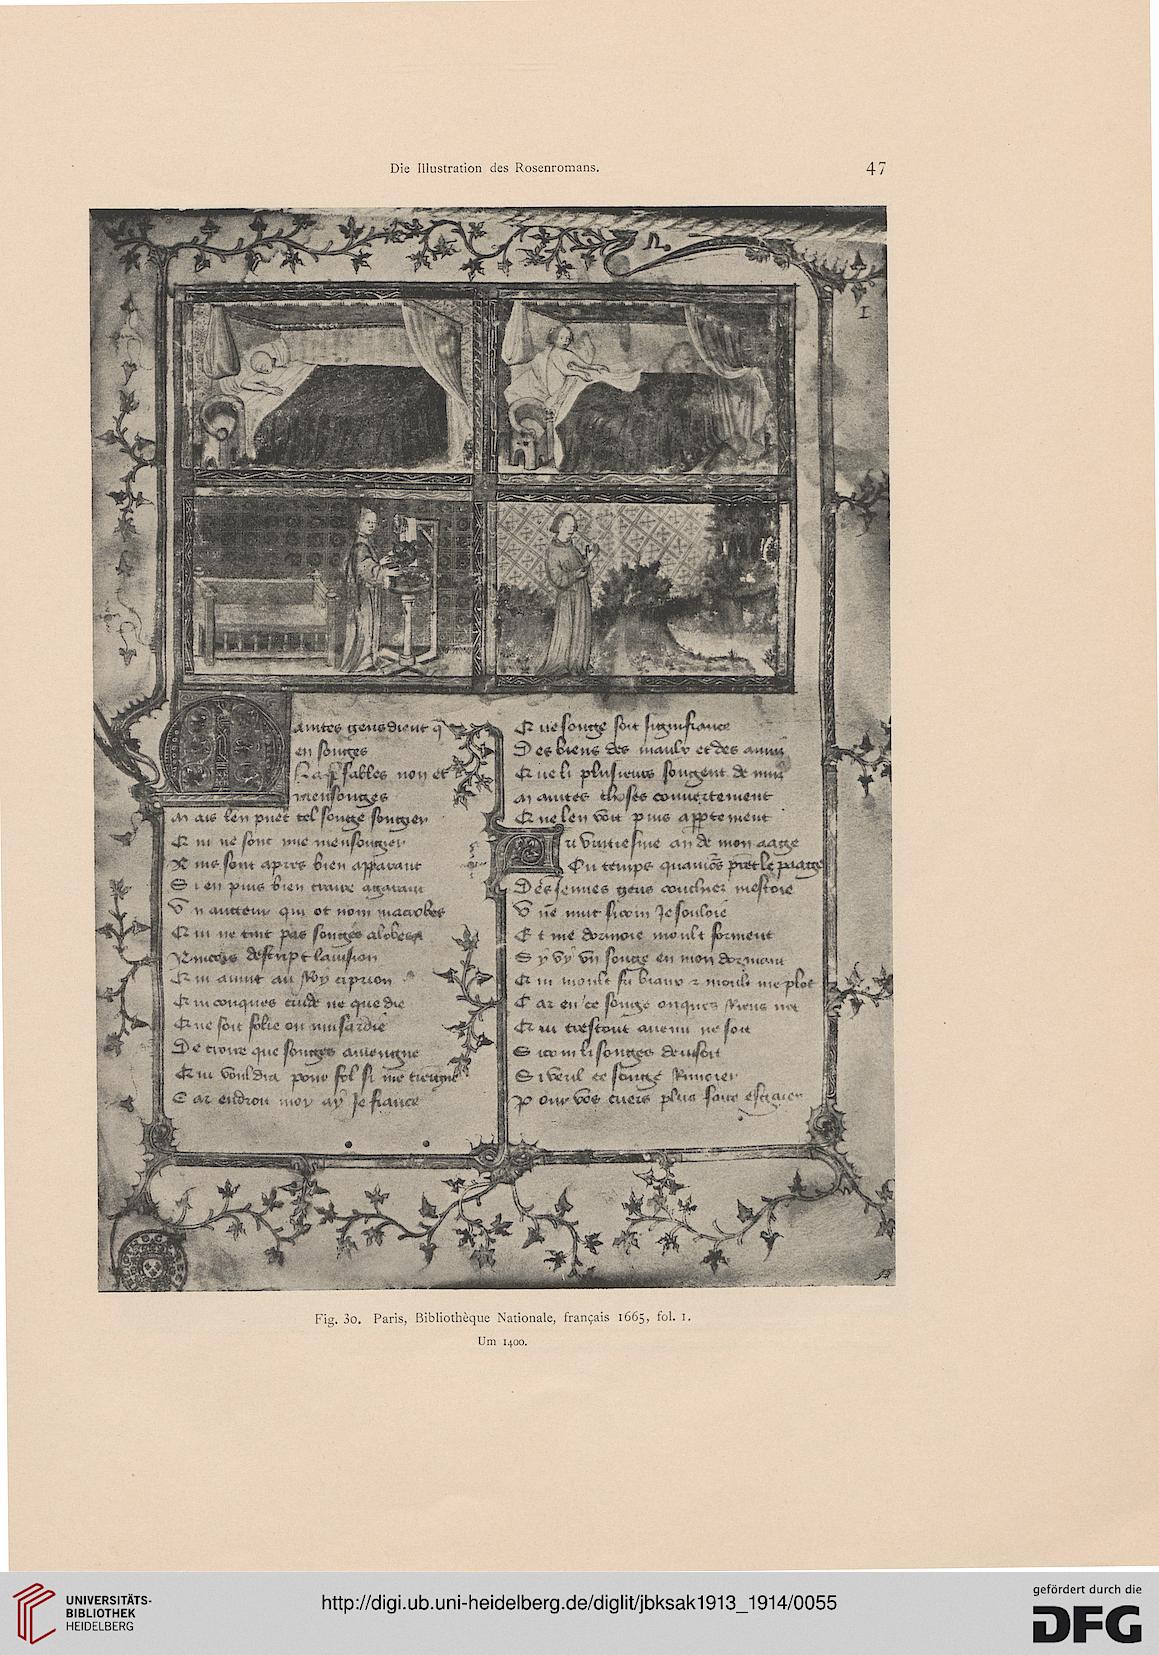 Die Illustration des Rosenromans.
47
I
aintes gens dient q̄
en songes
Na se fables non et
mensonges
Mais len puet tel songe songier
Qui ne sont mie mensongier
Ains sont apres bien apparant
Si en puis bien traire a garant
Vn aucteur qui ot nom macrobes
Qui ne tint pas songes a lobes
Aincois descript la
Qui auint au Roy ciprion
Qui conques cuide ne que die
Que soit folie ou musardie
De croire que songes auiengne
Qui vouldra pour fol si me tiengne
Car endroit moy ay Je fiance
Que songe soit signifiance
Des biens des maulx et des
Que li plusieurs songent de nuiz
Maintes choses couuertement
Que len voit puis appertement
u vintiesme an de mon aage
Ou temps quamors prēt le paage
Des jeunes gens couchiez mestoie
Vne nuit sicom Je souloie
Et me dormoie moult forment
Sy vy vn songe en mon dormant
Qui moult fu biaux z moult me plot
Car en ce songe onques Riens not
Qui trestout auenu ne soit
Sicom li songes deuisoit
Si vueil ce songe Rimoier
Pour vos cuers plus faire esgaier
Fig. 30. Paris, Bibliothèque Nationale, français 1665, fol. 1.
Um 1400.
UNIVERSITÄTS-
BIBLIOTHEK
HEIDELBERG
http://digi.ub.uni-heidelberg.de/diglit/jbksak1913_1914/0055
gefördert durch die
DFG